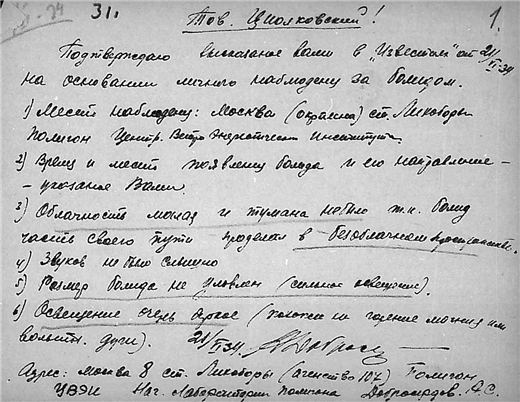 31. Тов. Циолковский! 1.
Подтверждаю высказаное вами в "Известиях" от 21/II 34
на основании личного наблюдения за болидом.
1) Место наблюдения: Москва (окраина) ст. Лихоборы
Полигон Центр. Ветро Энергетическ Института.
2) Время и место появления болида и его направление -
- указаное Вами
3) Облачность малая и тумана небыло т.к. болид
часть своего пути проделал в безоблачном пространстве.
4) Звуков не было слышно
5) Размер болида не уловлен (сильное освещение).
6) Освещение очень яркое (похоже на горение магния или
вольт. дуги). 21/II 34.
Адрес: Москва 8 ст. Лихоборы (агенство 107) Полигон
ЦВЭИ Нач. Лаборатории Полигона А.С.